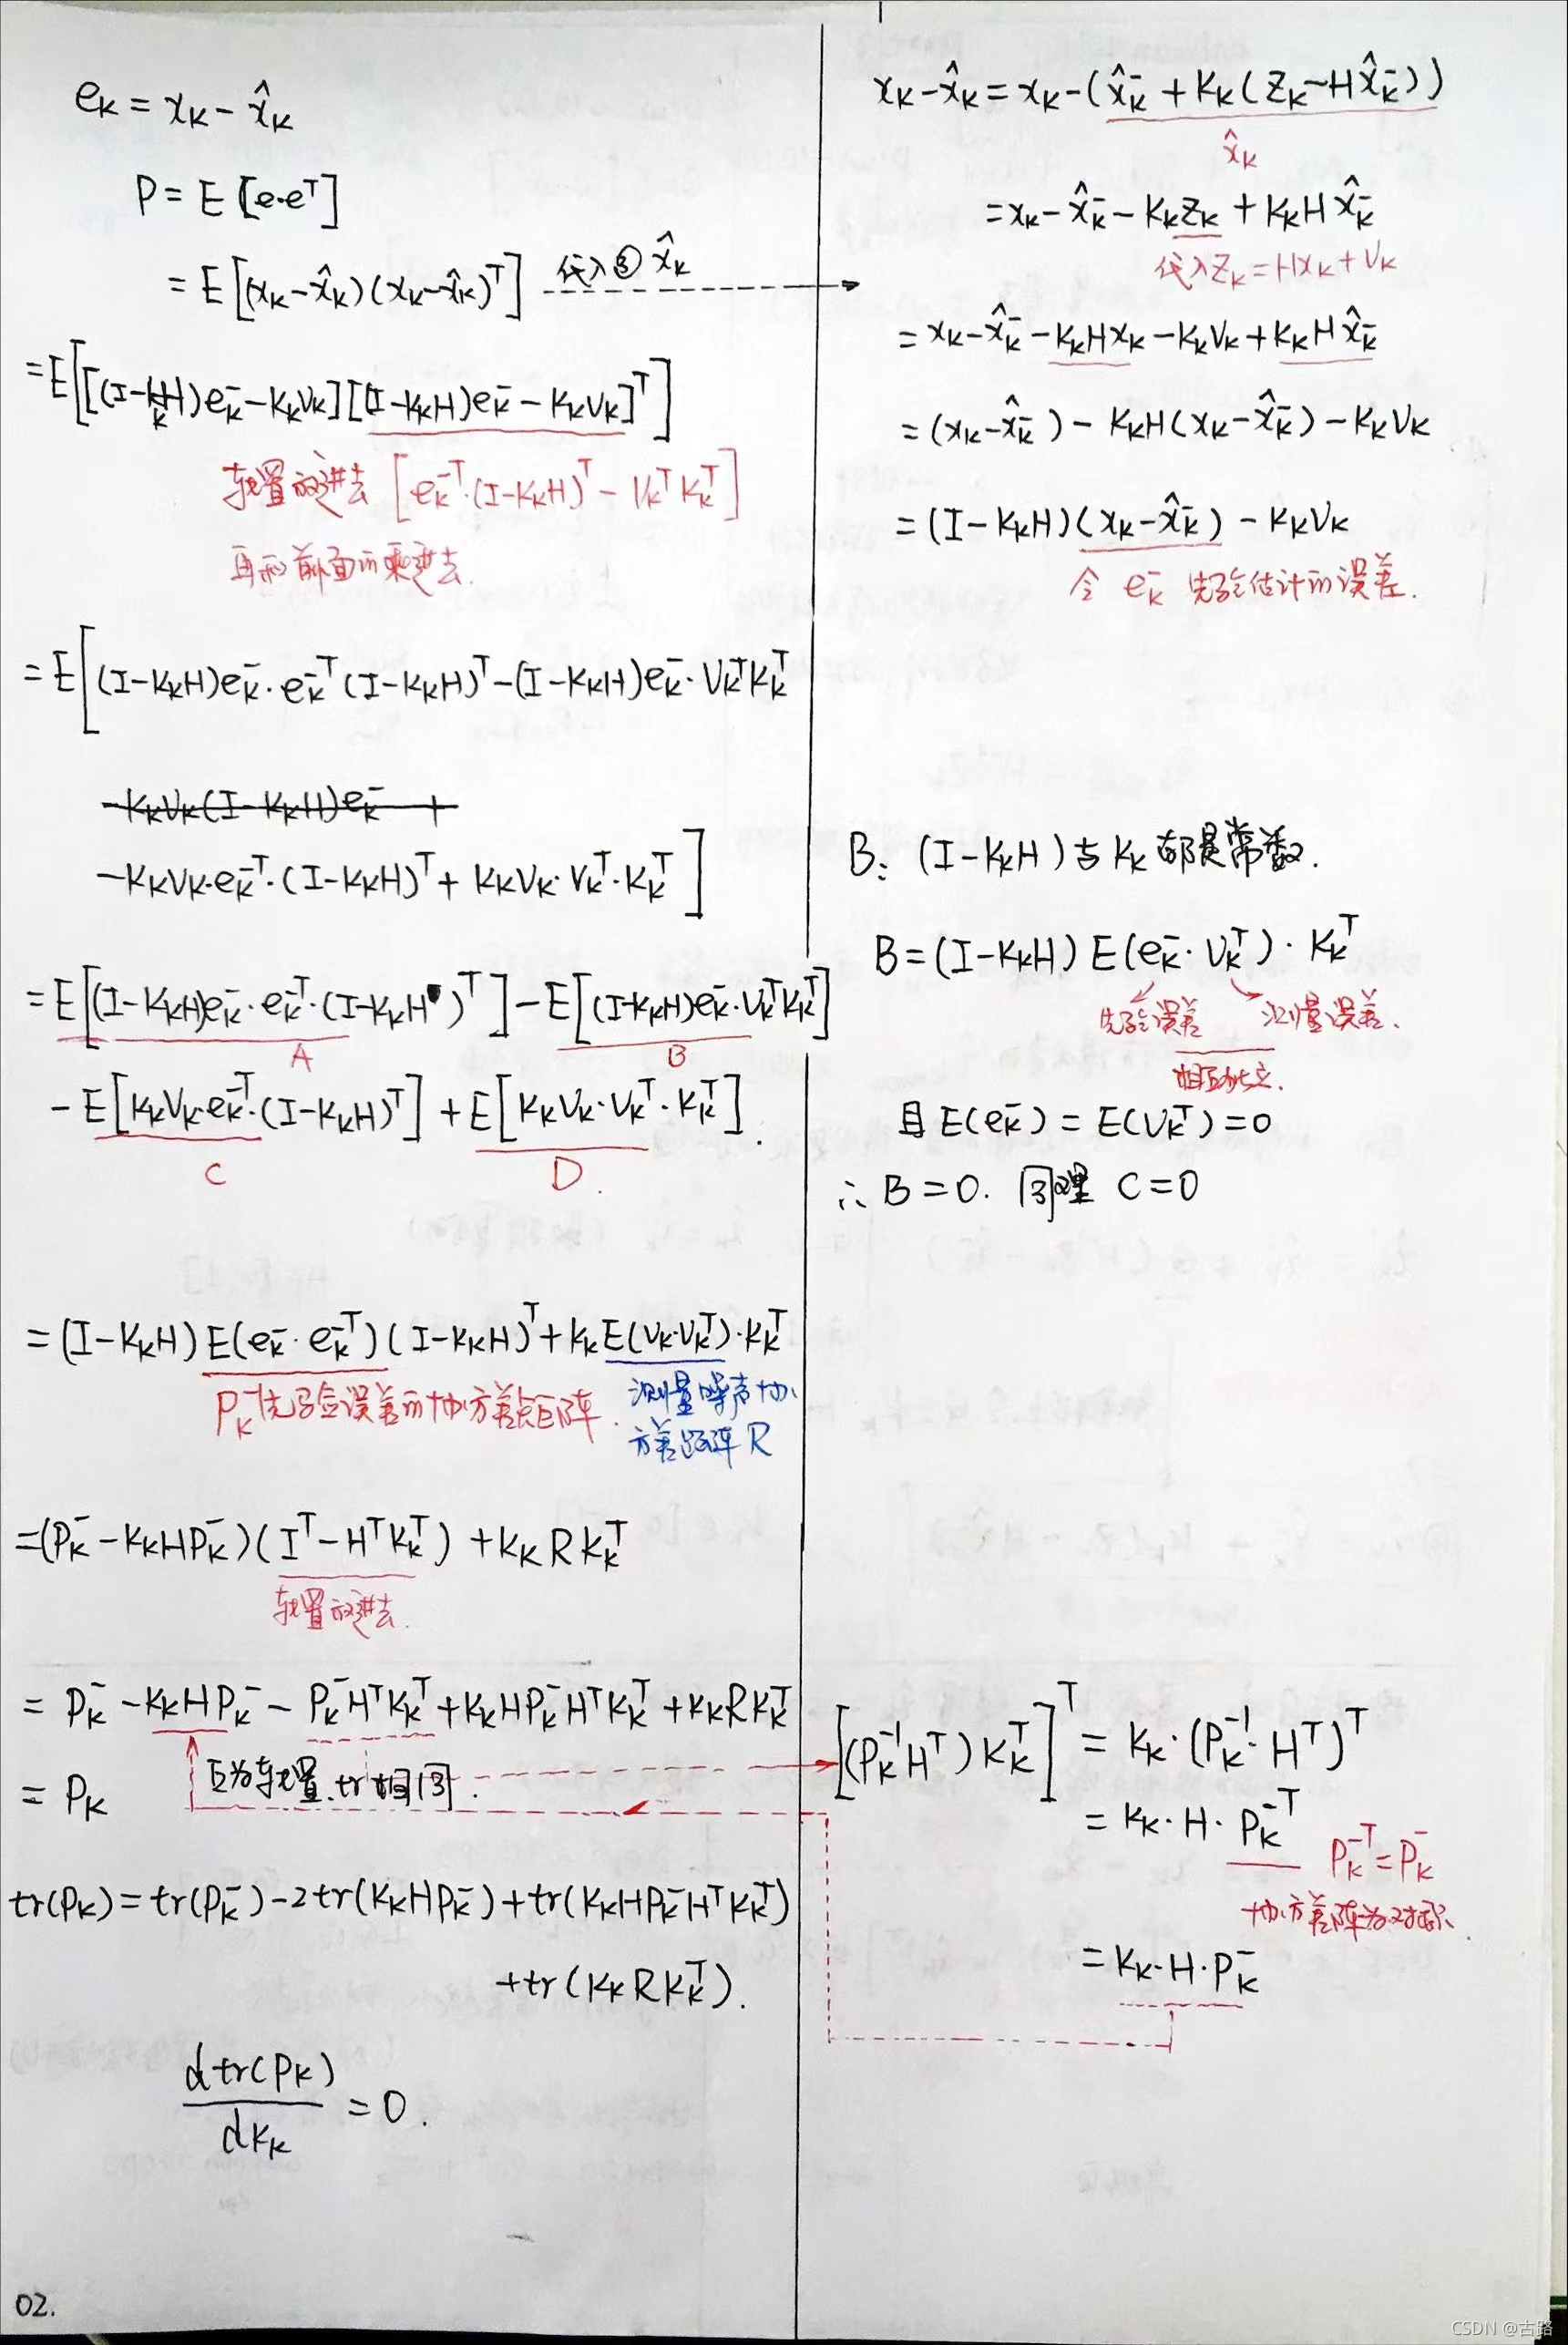 e_K = x_K - x̂_K
P = E [e·e^T]
= E [(x_K - x̂_K)(x_K - x̂_K)^T] 代入③ x̂_K
= E [[(I - K_K H) e_K^- - K_K V_K][(I - K_K H) e_K^- - K_K V_K]^T]
转置放进去 [e_K^{-T}·(I - K_K H)^T - V_K^T K_K^T]
再和前面的乘进去.
= E [(I - K_K H) e_K^-·e_K^{-T} (I - K_K H)^T - (I - K_K H) e_K^-·V_K^T K_K^T
-K_K V_K (I - K_K H) e_K^- +
- K_K V_K·e_K^{-T}·(I - K_K H)^T + K_K V_K·V_K^T·K_K^T]
= E [(I - K_K H) e_K^-·e_K^{-T}·(I - K_K H)^T] - E [(I - K_K H) e_K^-·V_K^T K_K^T]
A B
- E [K_K V_K·e_K^{-T}·(I - K_K H)^T] + E [K_K V_K·V_K^T·K_K^T].
C D.
= (I - K_K H) E(e_K^-·e_K^{-T}) (I - K_K H)^T + K_K E(V_K·V_K^T)·K_K^T
P_K^- 先验误差的协方差矩阵.
测量噪声协
方差矩阵 R
= (P_K^- - K_K H P_K^-)(I^T - H^T K_K^T) + K_K R K_K^T
转置放进去.
= P_K^- - K_K H P_K^- - P_K^- H^T K_K^T + K_K H P_K^- H^T K_K^T + K_K R K_K^T
互为转置. tr 相同.
= P_K
tr(P_K) = tr(P_K^-) - 2tr(K_K H P_K^-) + tr(K_K H P_K^- H^T K_K^T)
+ tr(K_K R K_K^T).
d tr(P_K) / d K_K = 0.
02.
x_K - x̂_K = x_K - (x̂_K^- + K_K (Z_K - H x̂_K^-))
x̂_K
= x_K - x̂_K^- - K_K Z_K + K_K H x̂_K^-
代入 Z_K = H x_K + V_K
= x_K - x̂_K^- - K_K H x_K - K_K V_K + K_K H x̂_K^-
= (x_K - x̂_K^-) - K_K H (x_K - x̂_K^-) - K_K V_K
= (I - K_K H)(x_K - x̂_K^-) - K_K V_K
令 e_K^- 先验估计的误差.
B: (I - K_K H) 与 K_K 都是常数.
B = (I - K_K H) E(e_K^-·V_K^T)·K_K^T
先验误差 测量误差.
相互独立.
且 E(e_K^-) = E(V_K^T) = 0
∴ B = 0. 同理 C = 0
[(P_K^{-1} H^T) K_K^T]^T = K_K·(P_K^{-1}·H^T)^T
= K_K·H·P_K^{-T}
P_K^{-T} = P_K^-
协方差阵为对称.
= K_K·H·P_K^-
CSDN @古路